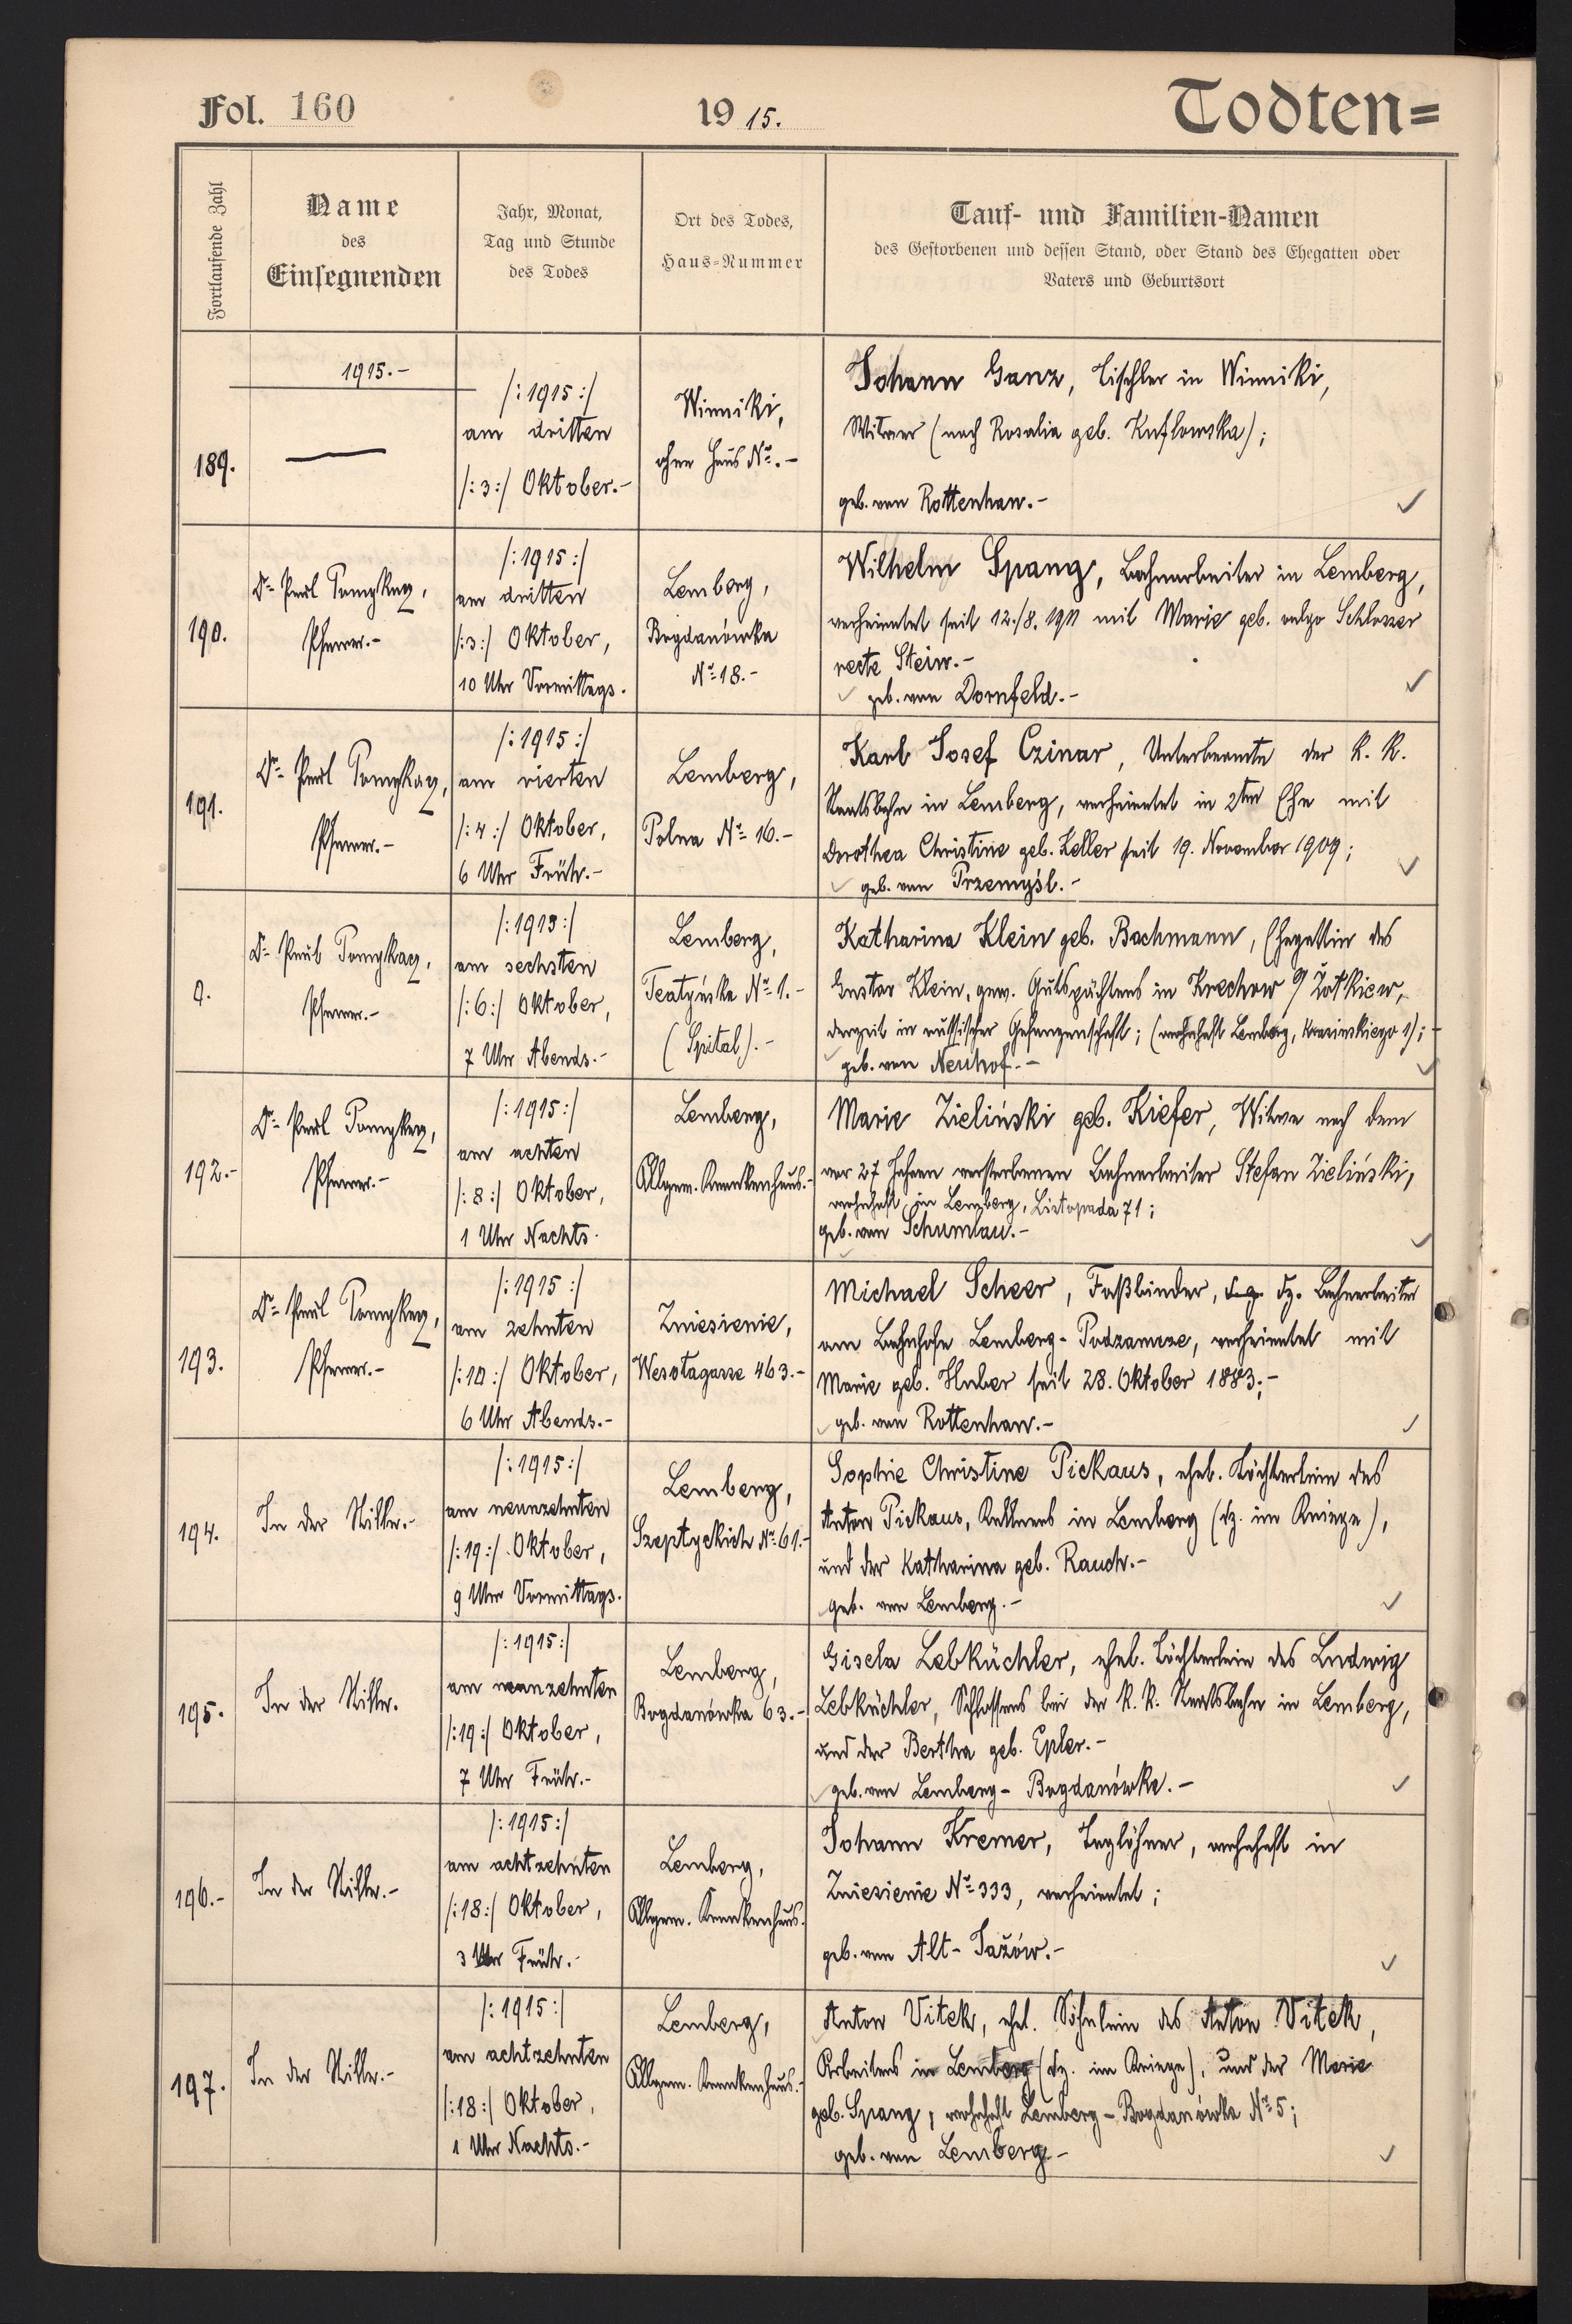 Fol. 160
1915.
Todten=
Fortlaufende Zahl
Name
des
Einsegnenden
Jahr, Monat,
Tag und Stunde
des Todes
Ort des Todes,
Haus=Nummer
Tauf- und Familien-Namen
des Gestorbenen und dessen Stand, oder Stand des Ehegatten oder
Vaters und Geburtsort
189.
1915.-
/:1915:/
am dritten
/:3:/ Oktober.-
Winniki,
ohne Haus Nr.-
Johann Ganz, Tischler in Winniki,
Witwer (nach Rosalia geb. Kuflowska);
geb. von Rottenhan.-
190.
Dr. Paul
Pfarrer.-
/:1915:/
am dritten
/:3:/ Oktober,
10 Uhr Vormittags.
Lemberg,
Bogdanówka
Nr. 18.-
Wilhelm Spang, Bahnarbeiter in Lemberg,
verheiratet seit 12./8. 1911 mit Marie geb. vulgo Schlosser
recte Stein.-
geb. von Dornfeld.-
191.
Dr. Paul
Pfarrer.-
/:1915:/
am vierten
/:4:/ Oktober,
6 Uhr Früh.-
Lemberg,
Polna Nr. 16.-
Karl Josef Czinar, Unterbeamte der k. k.
Staatsbahn in Lemberg, verheiratet in 2ter Ehe mit
Dorothea Christine geb. Keller seit 19. November 1909;
geb. von Przemyśl.-
a.
Dr. Paul
Pfarrer.-
/:1913:/
am sechsten
/:6:/ Oktober,
7 Uhr Abends.-
Lemberg,
Teatyńska Nr. 1.-
(Spital).-
Katharina Klein geb. Bachmann, Ehegattin des
Gustav Klein, gew. Gutspächters in Krechow Żołkiew,
derzeit in russischer Gefangenschaft; (wohnhaft Lemberg, Krasinskiego 1);-
geb. von Neuhof.-
192.-
Dr. Paul
Pfarrer.-
/:1915:/
am achten
/:8:/ Oktober,
1 Uhr Nachts.
Lemberg,
Allgem. Krankenhaus.-
Marie Zieliński geb. Kiefer, Witwe nach dem
vor 27 Jahren verstorbenen Bahnarbeiter Stefan Zieliński,
wohnhaft in Lemberg, Listopada 71;
geb. von Schumlau.-
193.
Dr. Paul
Pfarrer.-
/:1915:/
am zehnten
/:10:/ Oktober,
6 Uhr Abends.-
Zniesienie,
Wesołagasse 463.-
Michael Scheer, Faßbinder, dz. Bahnarbeiter
am Bahnhofe Lemberg-Podzamcze, verheiratet mit
Marie geb. Huber seit 28. Oktober 1883;-
geb. von Rottenhan.-
194.
In der Stille.-
/:1915:/
am neunzehnten
/:19:/ Oktober,
9 Uhr Vormittags.
Lemberg,
Szeptyckich Nr. 61.-
Sophie Christine Pickaus, ehel. Töchterlein des
Anton Pickaus, Kellners in Lemberg (dz. im Kriege),
und der Katharina geb. Rauch.-
geb. von Lemberg.-
195.
In der Stille.
/:1915:/
am neunzehnten
/:19:/ Oktober,
7 Uhr Früh.-
Lemberg,
Bogdanówka 63.-
Gisela Lebküchler, ehel. Töchterlein des Ludwig
Lebküchler, Schlossers bei der k. k. Staatsbahn in Lemberg,
und der Bertha geb. Epler.-
geb. von Lemberg-Bogdanówka.-
196.-
In der Stille.-
/:1915:/
am achtzehnten
/:18:/ Oktober,
3 Uhr Früh.-
Lemberg,
Allgem. Krankenhaus.
Johann Kremer, Taglöhner, wohnhaft in
Zniesienie Nr. 333, verheiratet;
geb. von Alt-Jażów.-
197.
In der Stille.-
/:1915:/
am achtzehnten
/:18:/ Oktober,
1 Uhr Nachts.-
Lemberg,
Allgem. Krankenhaus.-
Anton Vitek, ehel. Söhnlein des Anton Vitek,
Arbeiters in Lemberg (dz. im Kriege), und der Marie
geb. Spang, wohnhaft Lemberg-Bogdanówka Nr. 5;
geb. von Lemberg-